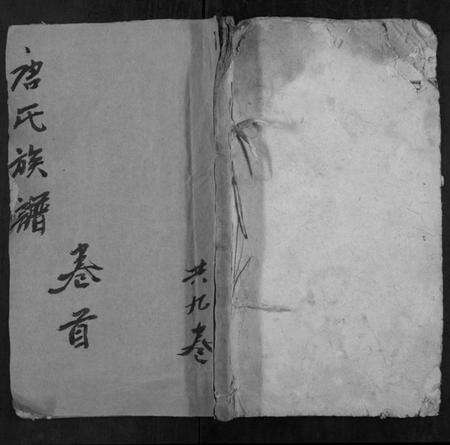 唐氏族譜
卷首
共九卷